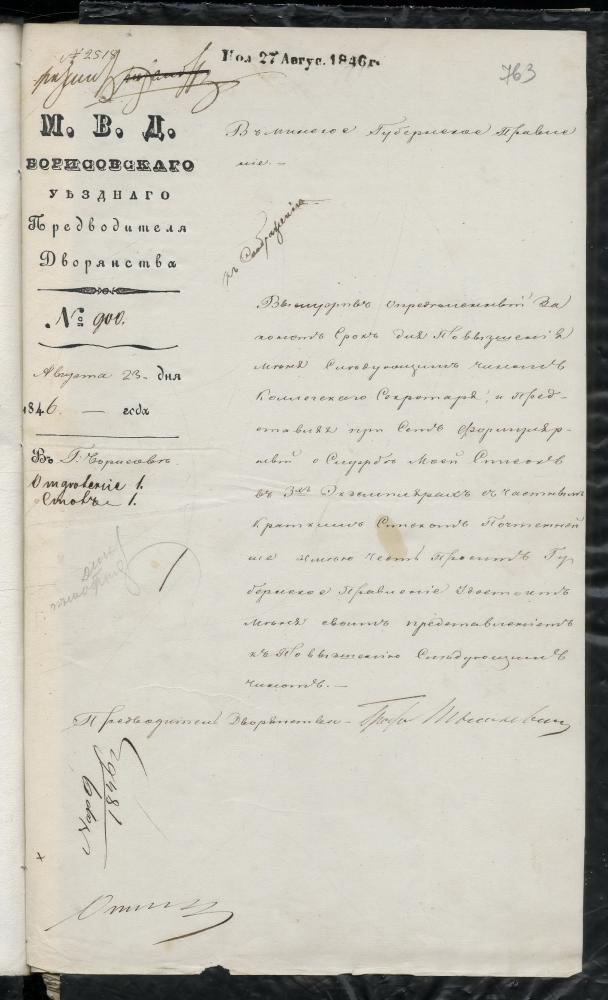 № 2518
Пол. 27 Авгус. 1846 г.
763
М. В. Д.
БОРИСОВСКАГО
УѢЗДНАГО
Предводителя
Дворянства
№ 900.
Августа 23- дня
1846. — года
Въ Г. Борисовѣ.
Отдѣленіе 1.
Столъ 1.
Въ Минское Губернское Правле
ніе. —
Выслуживъ опредѣленный За
кономъ Срокъ для Повышенія
меня Слѣдующимъ чиномъ
Коллежскаго Секретаря, и Пред-
ставляя при Семъ Формуляр-
ный о Службѣ Моей Списокъ
въ 3хъ Экземплярахъ съ частнымъ
Краткимъ Спискомъ Почтенней
ше имѣю честь Просить Гу
бернское Правленіе Удостоить
меня своимъ представленіемъ
къ Повышенію Слѣдующимъ
чиномъ. —
Предводитель Дворянства - Графъ